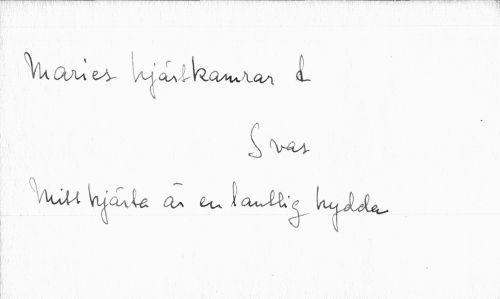 Maries hjärtkamrar &
Svar
Mitt hjärta är en lantlig hydda